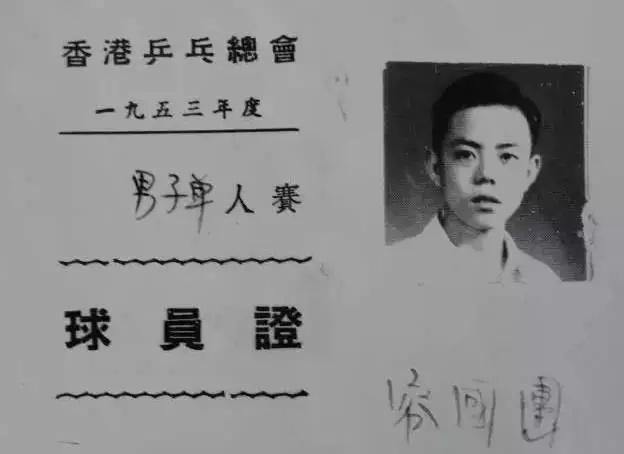 香港乒乓總會
一九五三年度
男子单人賽
球員證
容國團